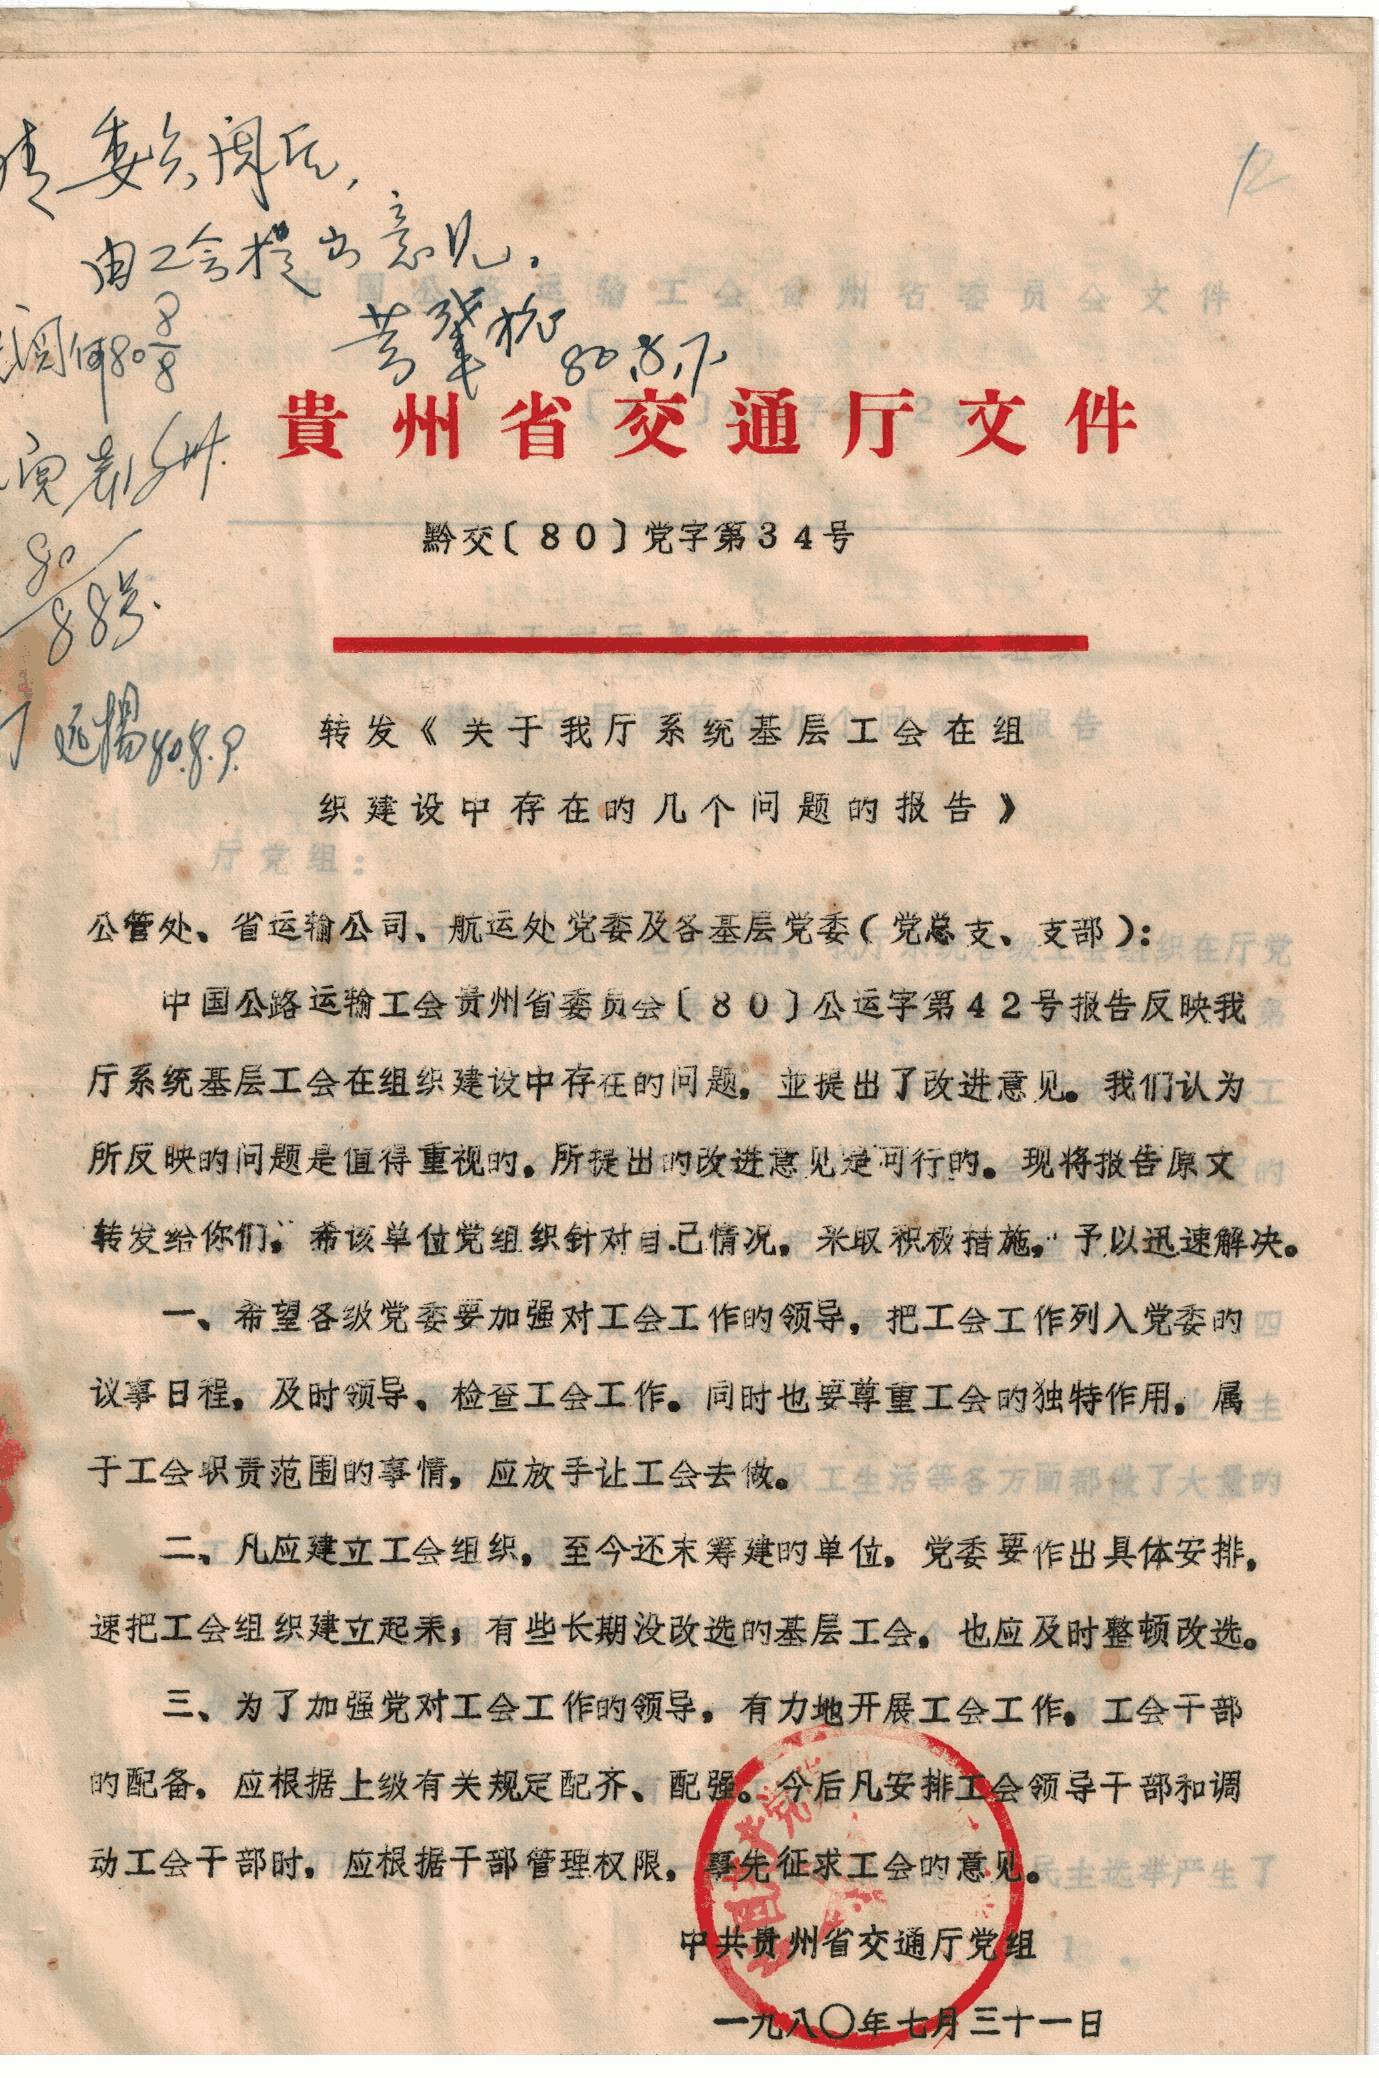 请委员阅后，
由工会提出意见。
80.8.7.
12
80 8/8
貴州省交通厅文件
黔交〔80〕党字第34号
80
远揚80.8.9.
转发《关于我厅系统基层工会在组
织建设中存在的几个问题的报告》
公管处、省运输公司、航运处党委及各基层党委（党总支、支部）：
中国公路运输工会贵州省委员会〔80〕公运字第42号报告反映我
厅系统基层工会在组织建设中存在的问题，並提出了改进意见。我们认为
所反映的问题是值得重视的。所提出的改进意见是可行的。现将报告原文
转发给你们，希该单位党组织针对自己情况，采取积极措施，予以迅速解决。
一、希望各级党委要加强对工会工作的领导，把工会工作列入党委的
议事日程，及时领导、检查工会工作。同时也要尊重工会的独特作用，属
于工会职责范围的事情，应放手让工会去做。
二、凡应建立工会组织，至今还未筹建的单位，党委要作出具体安排，
速把工会组织建立起来；有些长期没改选的基层工会，也应及时整顿改选。
三、为了加强党对工会工作的领导，有力地开展工会工作，工会干部
的配备，应根据上级有关规定配齐、配强。今后凡安排工会领导干部和调
动工会干部时，应根据干部管理权限，事先征求工会的意见。
中共贵州省交通厅党组
一九八〇年七月三十一日